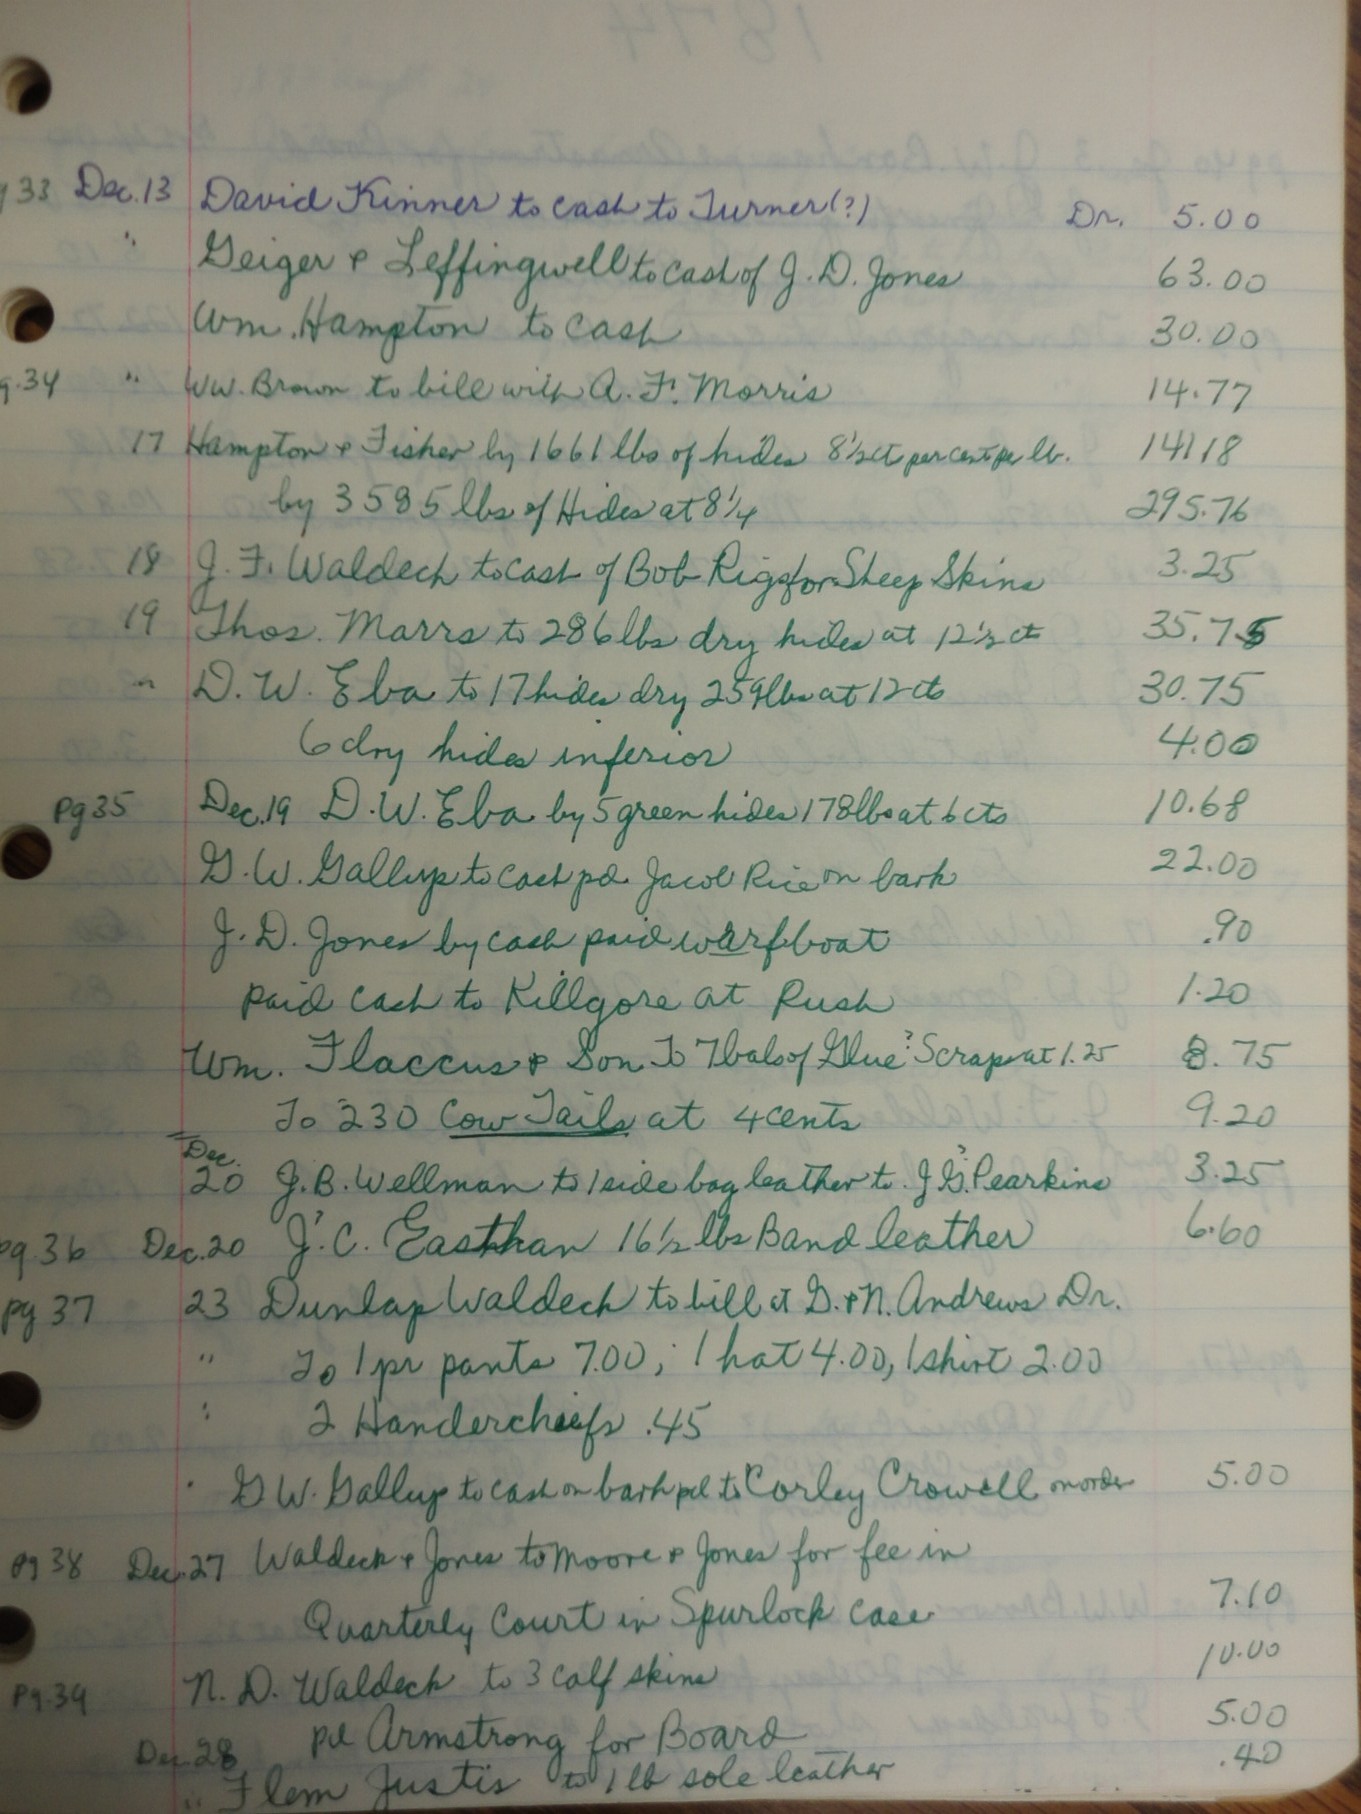 g 33 Dec. 13 David Kinner to cash to Turner (?) Dr. 5.00
" Geiger & Leffingwell to cash of J. D. Jones 63.00
Wm. Hampton to cash 30.00
g. 34 " WW. Brown to bill with A. F. Morris 14.77
17 Hampton & Fisher by 1661 lbs of hides 8½ct per cent per lb. 141 18
by 3585 lbs of Hides at 8¼ 295.76
18 J. F. Waldeck to cash of Bob Rigg for Sheep Skins 3.25
19 Thos. Marrs to 286 lbs dry hides at 12½ ct 35.75
" D. W. Eba to 17 hides dry 259 lbs at 12 cts 30.75
6 dry hides inferior 4.00
pg 35 Dec. 19 D. W. Eba by 5 green hides 178 lbs at 6 cts 10.68
G. W. Gallup to cash pd. Jacob Rice on bark 22.00
J. D. Jones by cash paid warfboat .90
paid cash to Killgore at Rush 1.20
Wm. Flaccus & Son To 7 bals of Glue? Scraps at 1.25 8.75
To 230 Cow Tails at 4 cents 9.20
Dec.
20 J. B. Wellman to 1 side bag leather to J? G. Pearkins 3.25
pg. 36 Dec. 20 J? C. Easthan 16½ lbs Band leather 6.60
pg 37 23 Dunlap Waldeck to bill at G. & N. Andrews Dr.
" To 1 pr pants 7.00; 1 hat 4.00, 1 shirt 2.00
" 2 Handerchiefs .45
" G W. Gallup to cash on bark pd to Corley Crowell on order 5.00
pg 38 Dec. 27 Waldeck & Jones to Moore & Jones for fee in
Quarterly Court in Spurlock case 7.10
Pg. 39 N. D. Waldeck to 3 calf skins 10.00
pd Armstrong for Board 5.00
Dec 28
" Flem Justis to 1 lb sole leather .40